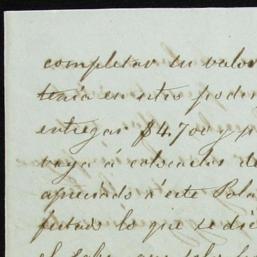 completar su valor
tenia en estos poder
entregar $4.700 y p
vaya á colocarlos de
apreciado a este Pala
lo que se di